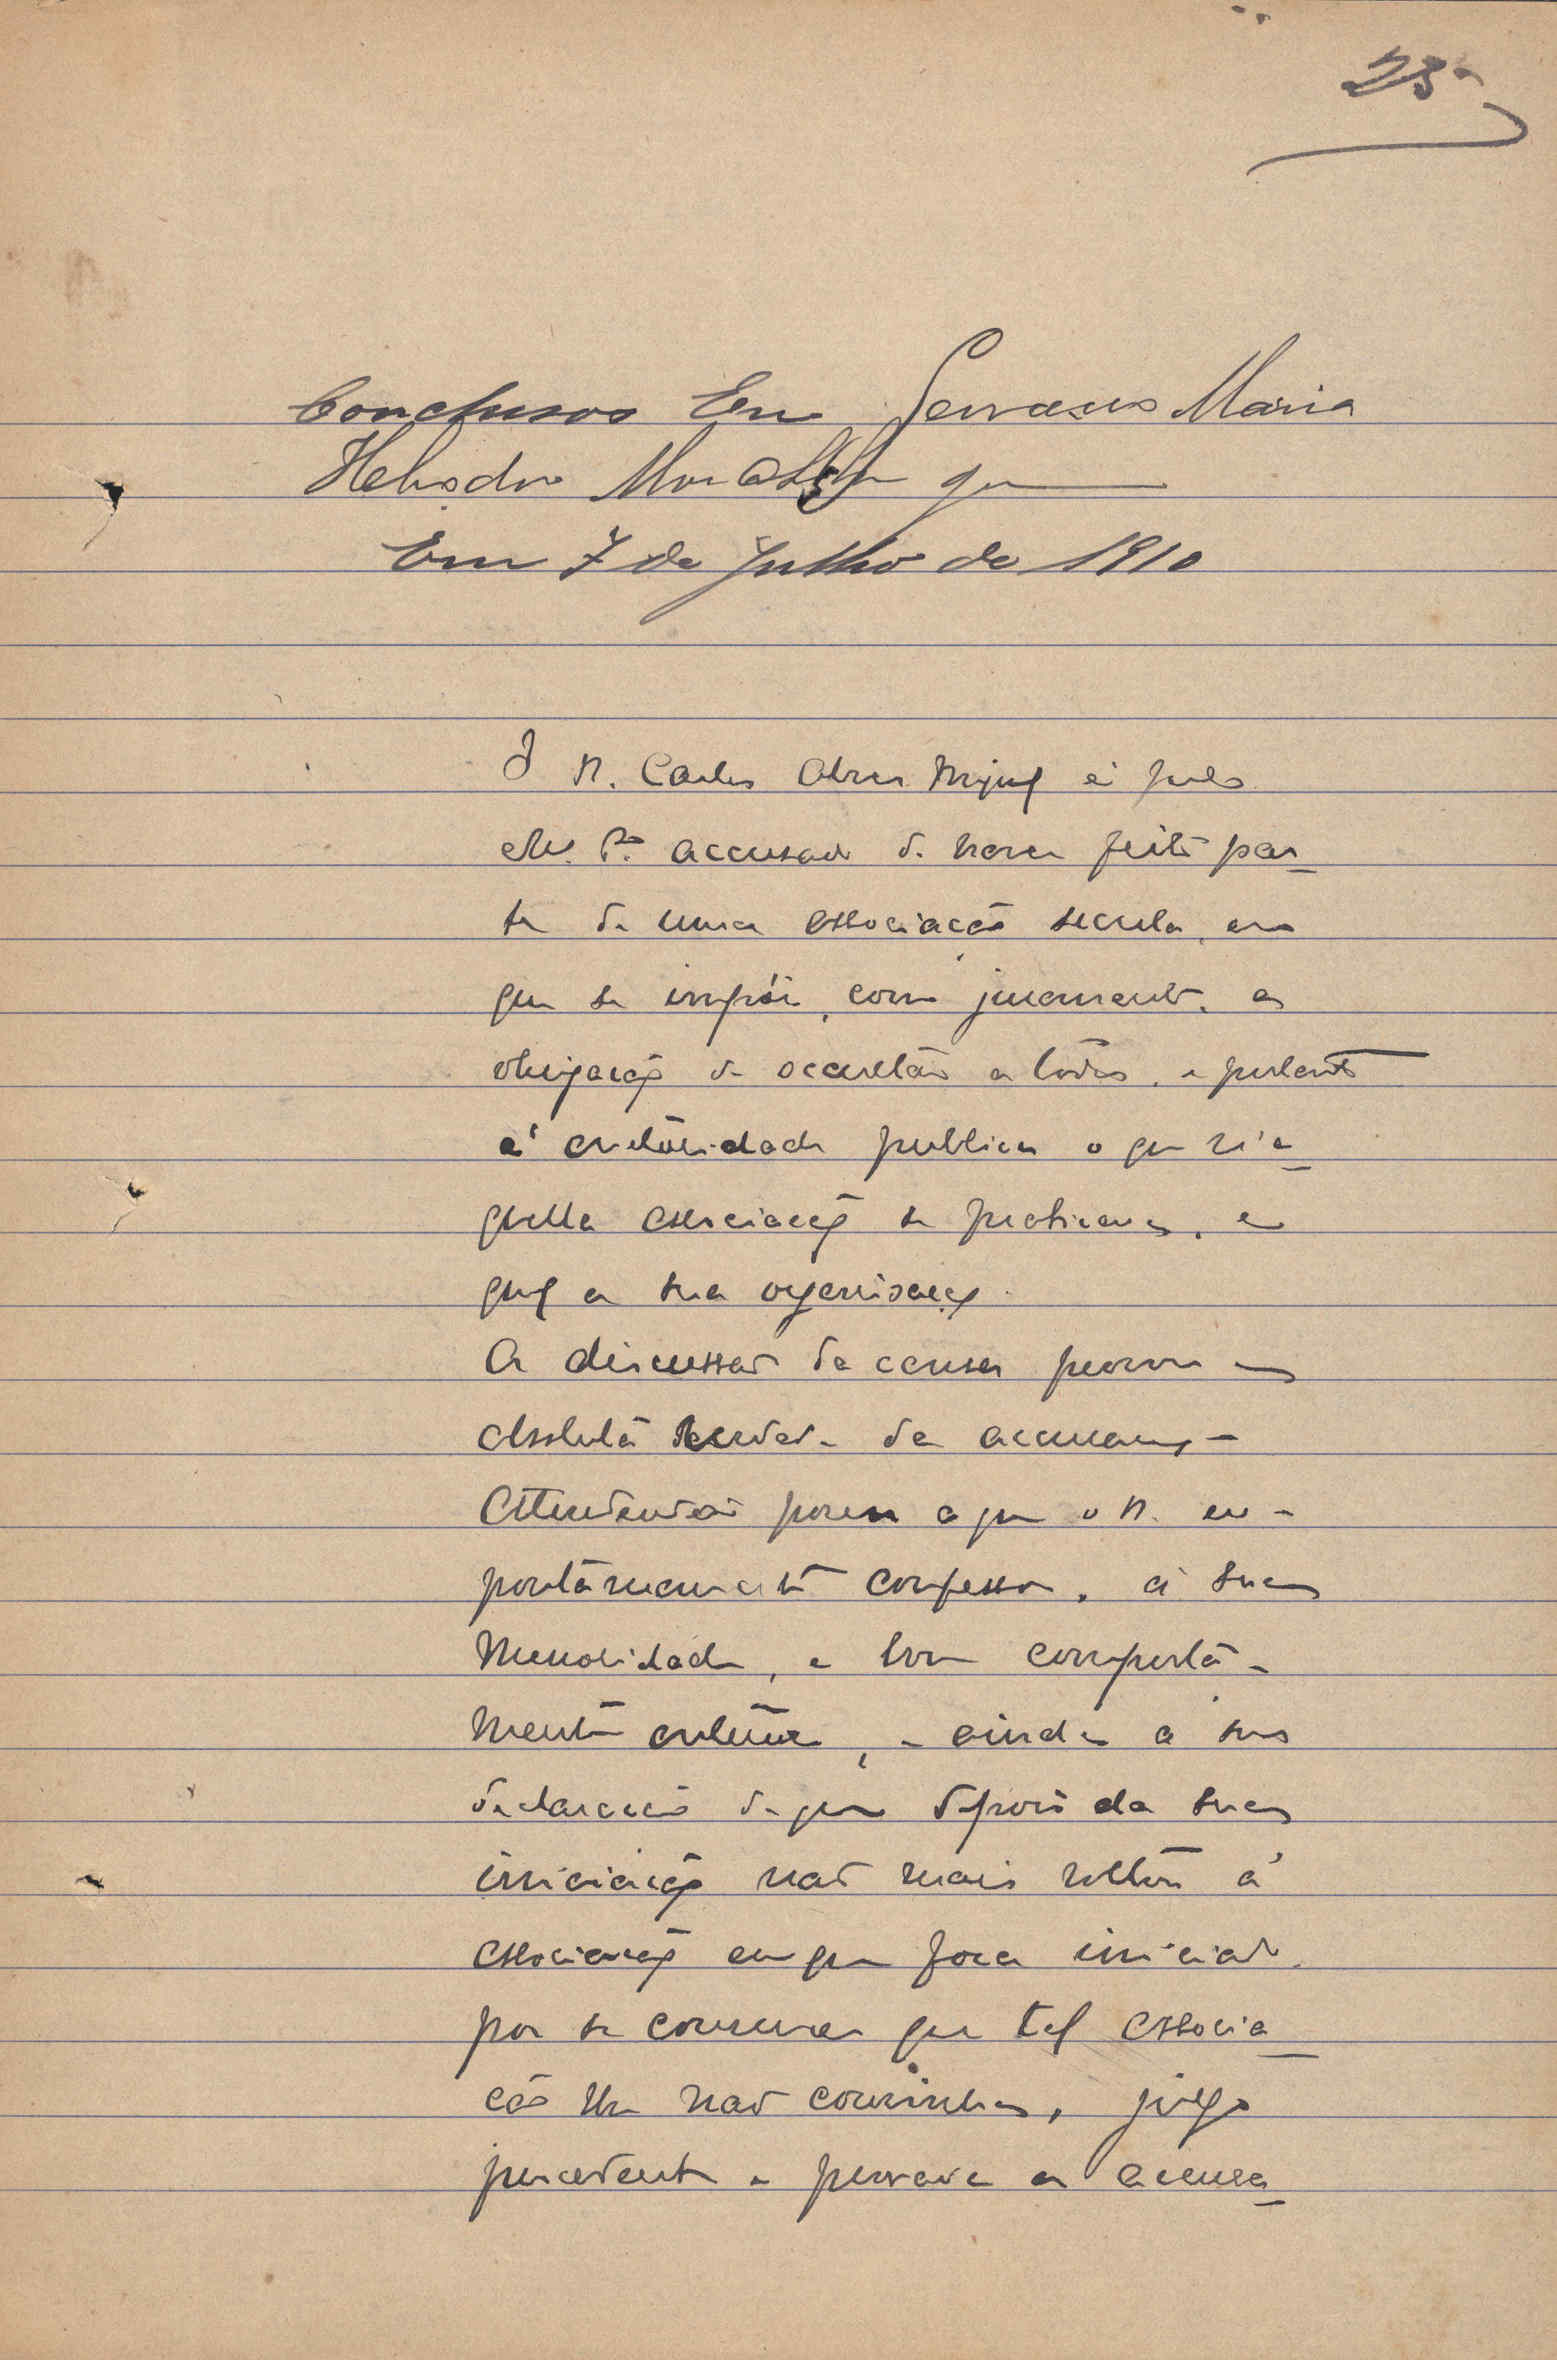 23
Conclusos Em Gervasio Maria
Heliodor
Em 7 de Julho de 1910
O R. Carlos Abreu é pelo
M. P. accusado de haver feito par_
te de uma associação secreta, em
que se impõe, com juramento, a
obrigação de occultar a todos, e portanto
á autoridade publica o que n'a_
quella associação se praticava, e
qual a sua organisação.
A discussão da causa provou a
absoluta verdade da accusação -
Attendendo porem a que o R. es-
pontâneamente confessou, á sua
menoridade, e bom comporta-
mento anterior, e ainda á sua
declaração de que depois da sua
iniciação não mais voltou á
associação em que fora iniciado,
por se convencer que tal associa_
ção lhe não convinha, julgo
procedente e provada a accusa_